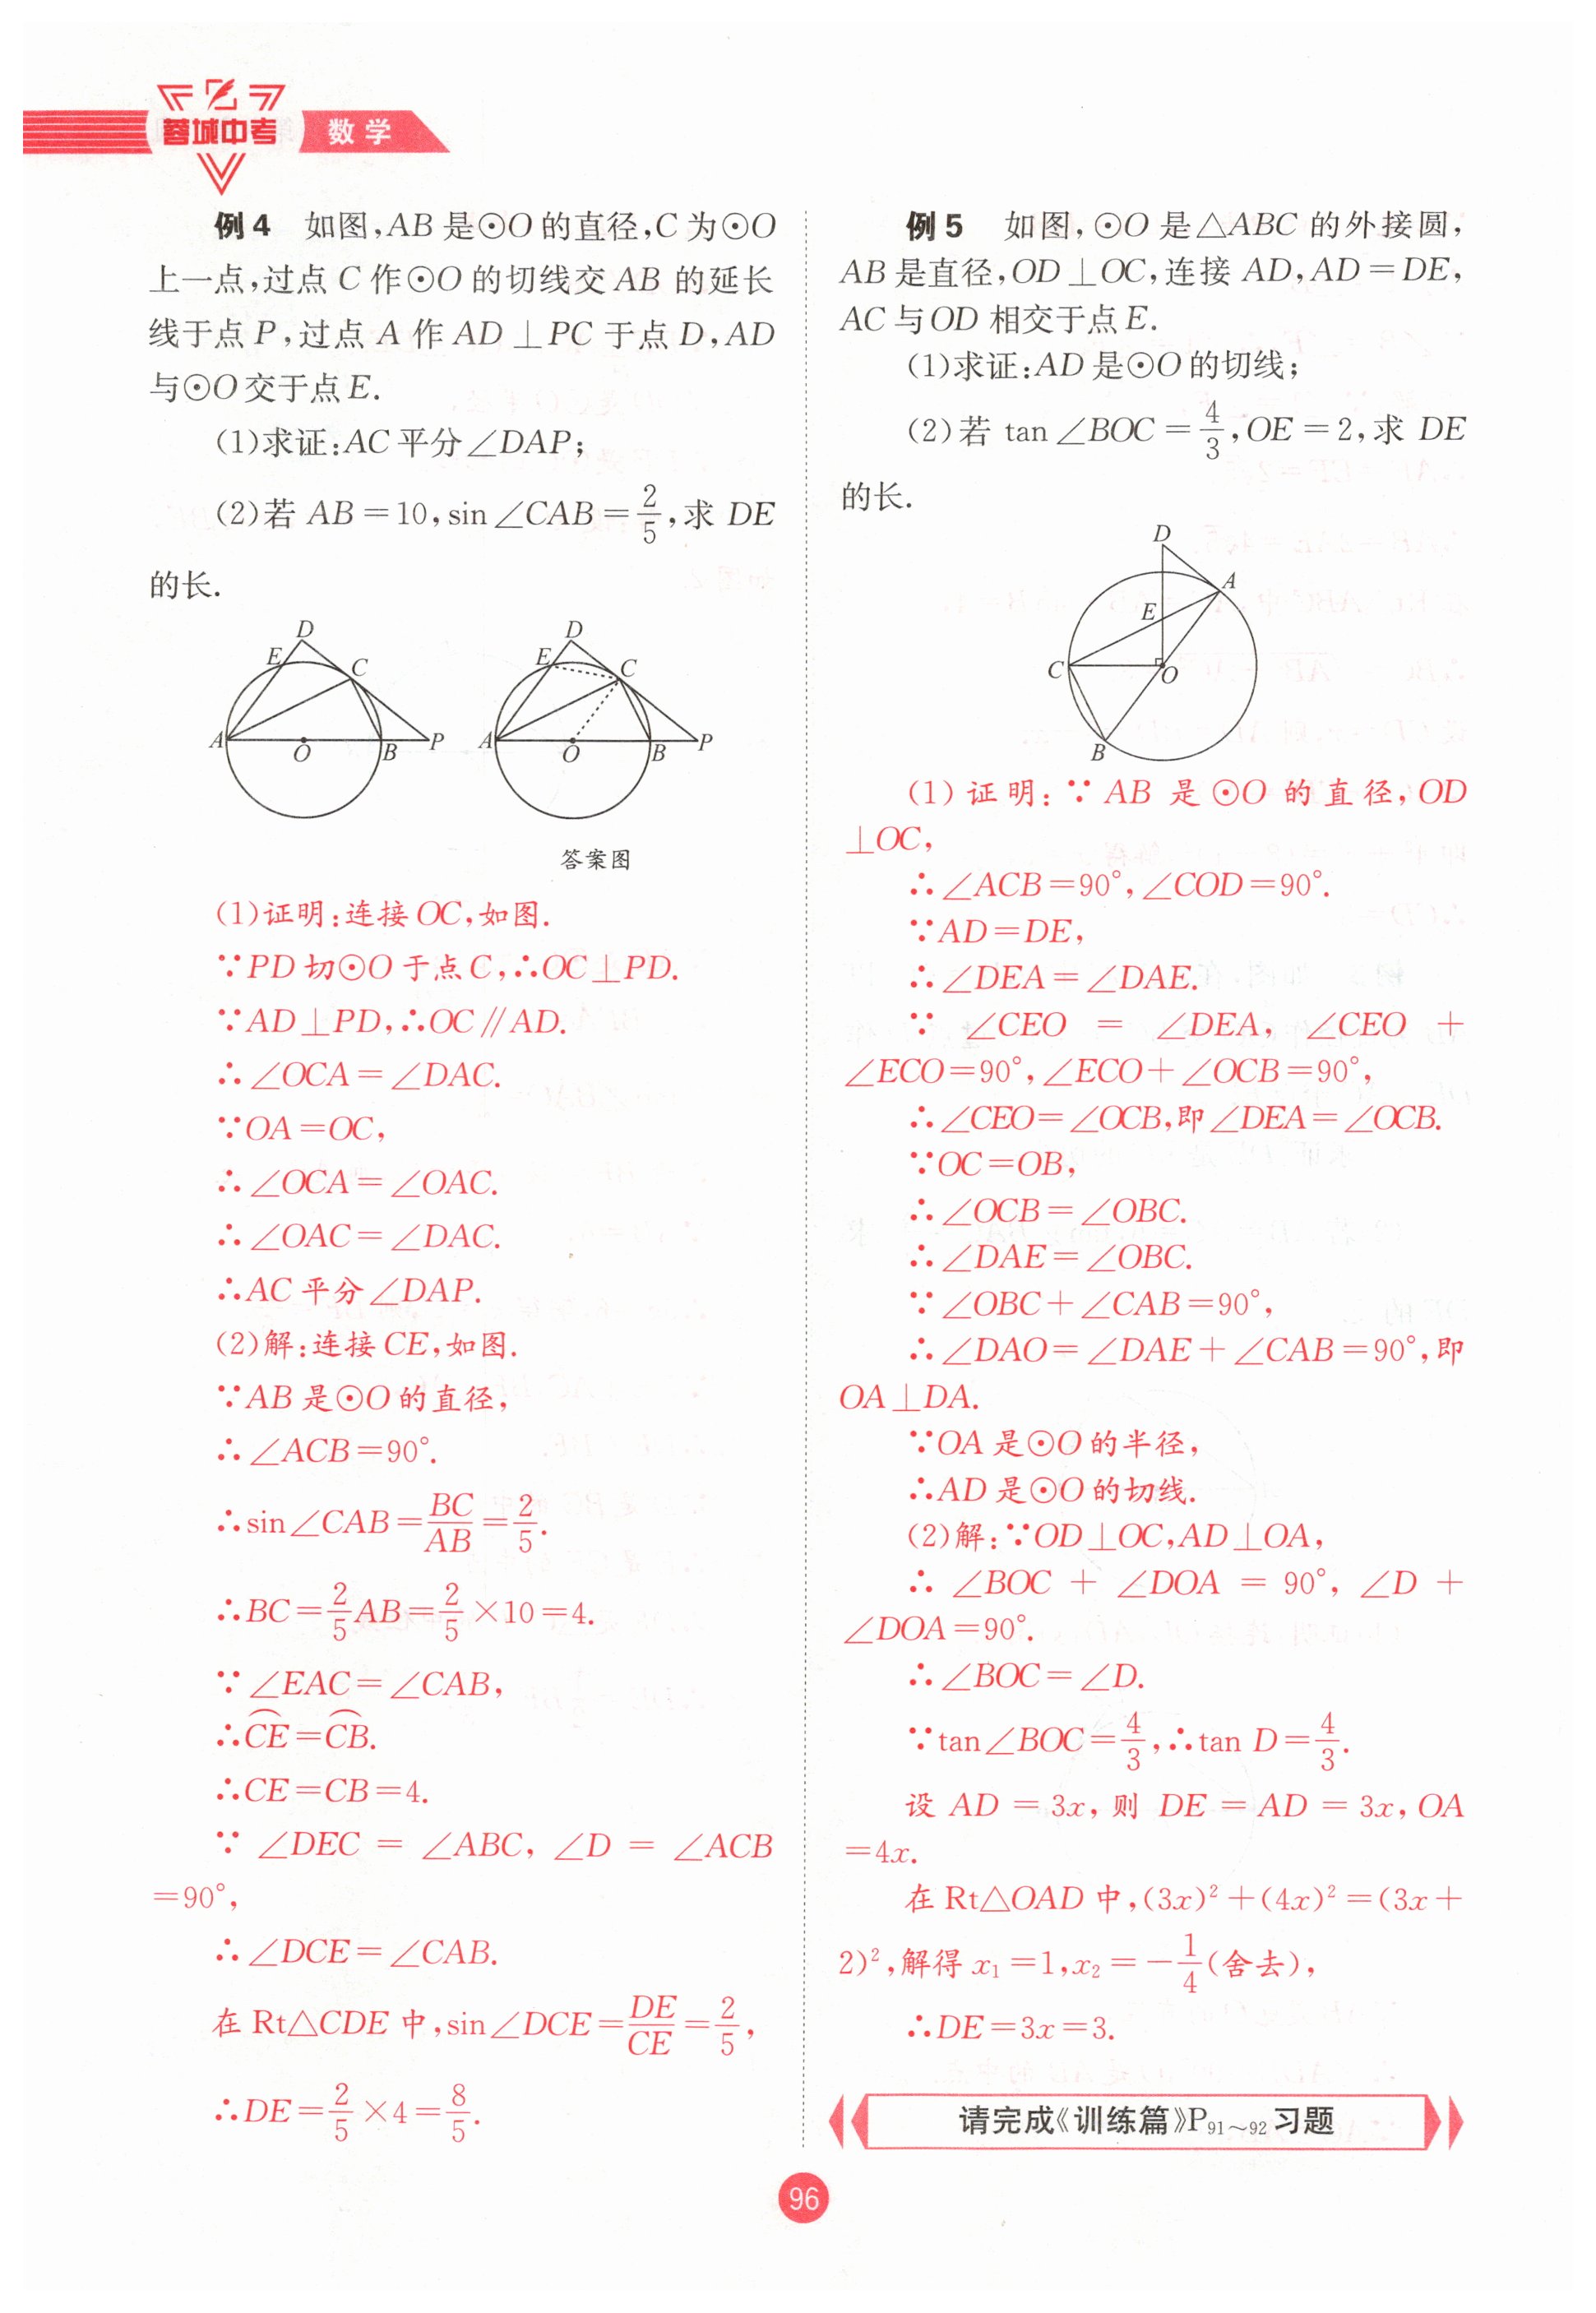 蓉城中考 数学
例4 如图,AB是⊙O的直径,C为⊙O
上一点,过点C作⊙O的切线交AB的延长
线于点P,过点A作AD⊥PC于点D,AD
与⊙O交于点E.
(1)求证:AC平分∠DAP;
(2)若AB=10,sin∠CAB=2/5,求DE
的长.
D
E
C
A
O
B
P
D
E
C
A
O
B
P
答案图
(1)证明:连接OC,如图.
∵PD切⊙O于点C,∴OC⊥PD.
∵AD⊥PD,∴OC∥AD.
∴∠OCA=∠DAC.
∵OA=OC,
∴∠OCA=∠OAC.
∴∠OAC=∠DAC.
∴AC平分∠DAP.
(2)解:连接CE,如图.
∵AB是⊙O的直径,
∴∠ACB=90°.
∴sin∠CAB=BC/AB=2/5.
∴BC=2/5AB=2/5×10=4.
∵∠EAC=∠CAB,
∴⌒CE=⌒CB.
∴CE=CB=4.
∵∠DEC=∠ABC,∠D=∠ACB
=90°,
∴∠DCE=∠CAB.
在Rt△CDE中,sin∠DCE=DE/CE=2/5,
∴DE=2/5×4=8/5.
例5 如图,⊙O是△ABC的外接圆,
AB是直径,OD⊥OC,连接AD,AD=DE,
AC与OD相交于点E.
(1)求证:AD是⊙O的切线;
(2)若tan∠BOC=4/3,OE=2,求DE
的长.
D
A
E
C
O
B
(1)证明:∵AB是⊙O的直径,OD
⊥OC,
∴∠ACB=90°,∠COD=90°.
∵AD=DE,
∴∠DEA=∠DAE.
∵∠CEO=∠DEA,∠CEO+
∠ECO=90°,∠ECO+∠OCB=90°,
∴∠CEO=∠OCB,即∠DEA=∠OCB.
∵OC=OB,
∴∠OCB=∠OBC.
∴∠DAE=∠OBC.
∵∠OBC+∠CAB=90°,
∴∠DAO=∠DAE+∠CAB=90°,即
OA⊥DA.
∵OA是⊙O的半径,
∴AD是⊙O的切线.
(2)解:∵OD⊥OC,AD⊥OA,
∴∠BOC+∠DOA=90°,∠D+
∠DOA=90°.
∴∠BOC=∠D.
∵tan∠BOC=4/3,∴tan D=4/3.
设AD=3x,则DE=AD=3x,OA
=4x.
在Rt△OAD中,(3x)²+(4x)²=(3x+
2)²,解得x₁=1,x₂=-1/4(舍去),
∴DE=3x=3.
请完成《训练篇》P91~92习题
96